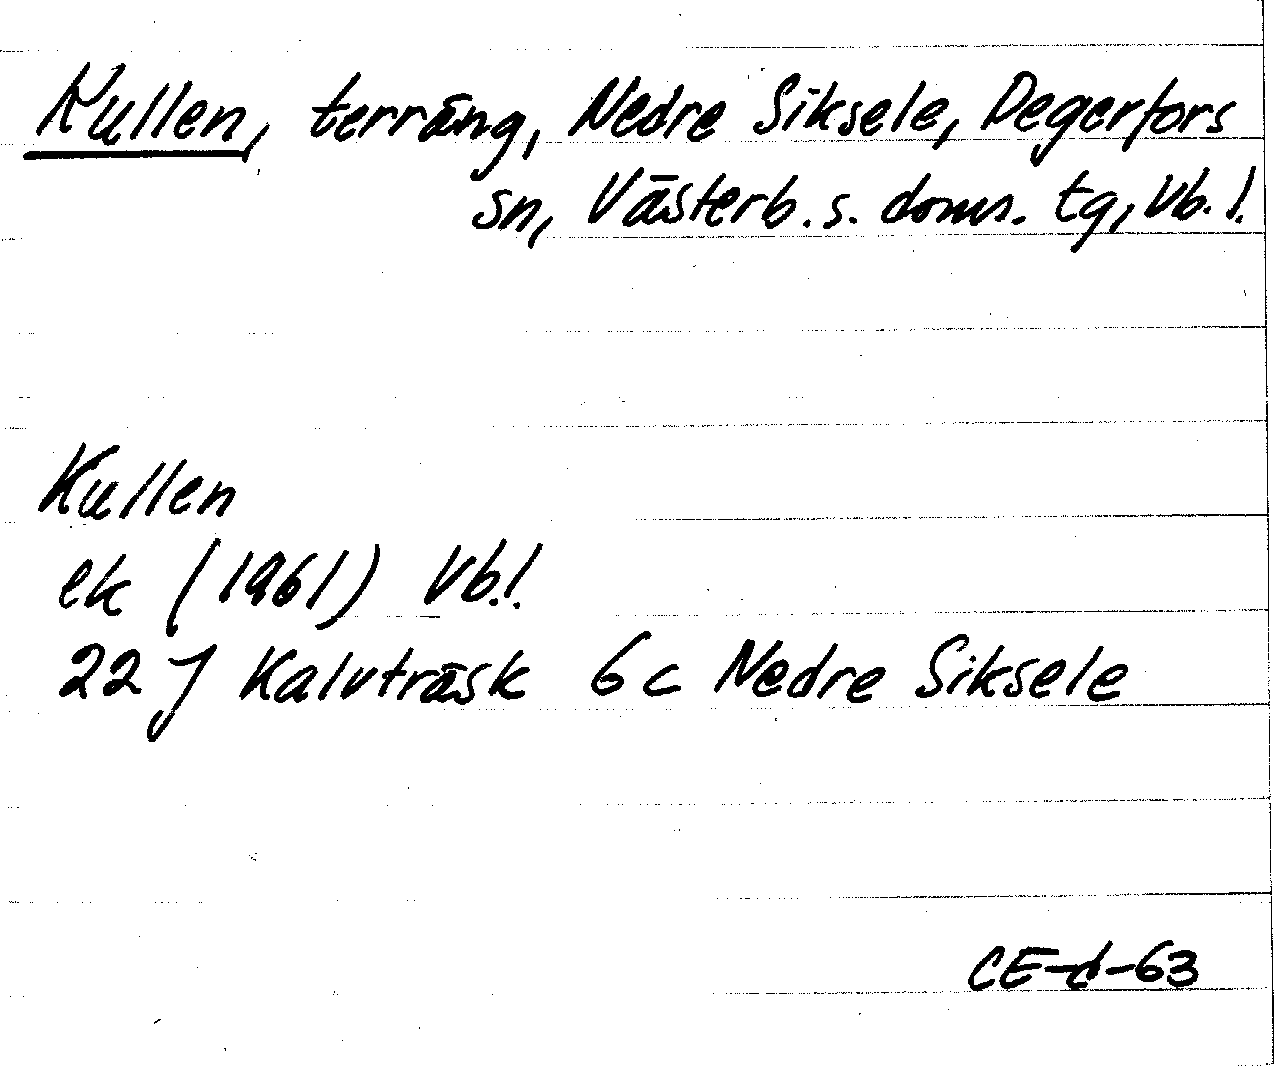 Kullen, terräng, Nedre Siksele, Degerfors
sn, Västerb. s. doms. tg, Vb. l.
Kullen
ek (1961) Vb.l.
22 J Kalvträsk 6 c Nedre Siksele
CE-d-63